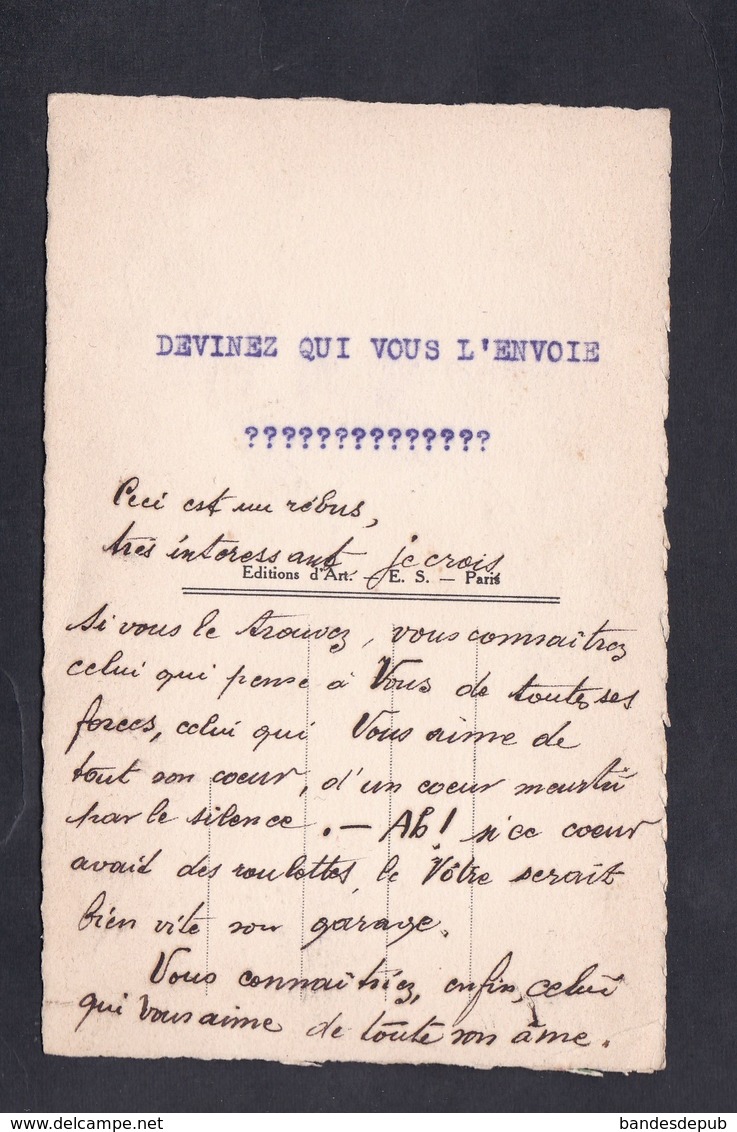 DEVINEZ QUI VOUS L'ENVOIE
??????????????
Ceci est un rébus,
très intéressant je crois
Editions d'Art. — E. S. — Paris
Si vous le trouvez, vous connaitrez
celui qui pense à Vous de toutes ses
forces, celui qui Vous aime de
tout son coeur, d'un coeur meurtri
par le silence. — Ah! si ce coeur
avait des roulettes, le Vôtre serait
bien vite son garage.
Vous connaîtriez, enfin, celui
qui Vous aime de toute son âme.
delcampe.net
bandesdepub